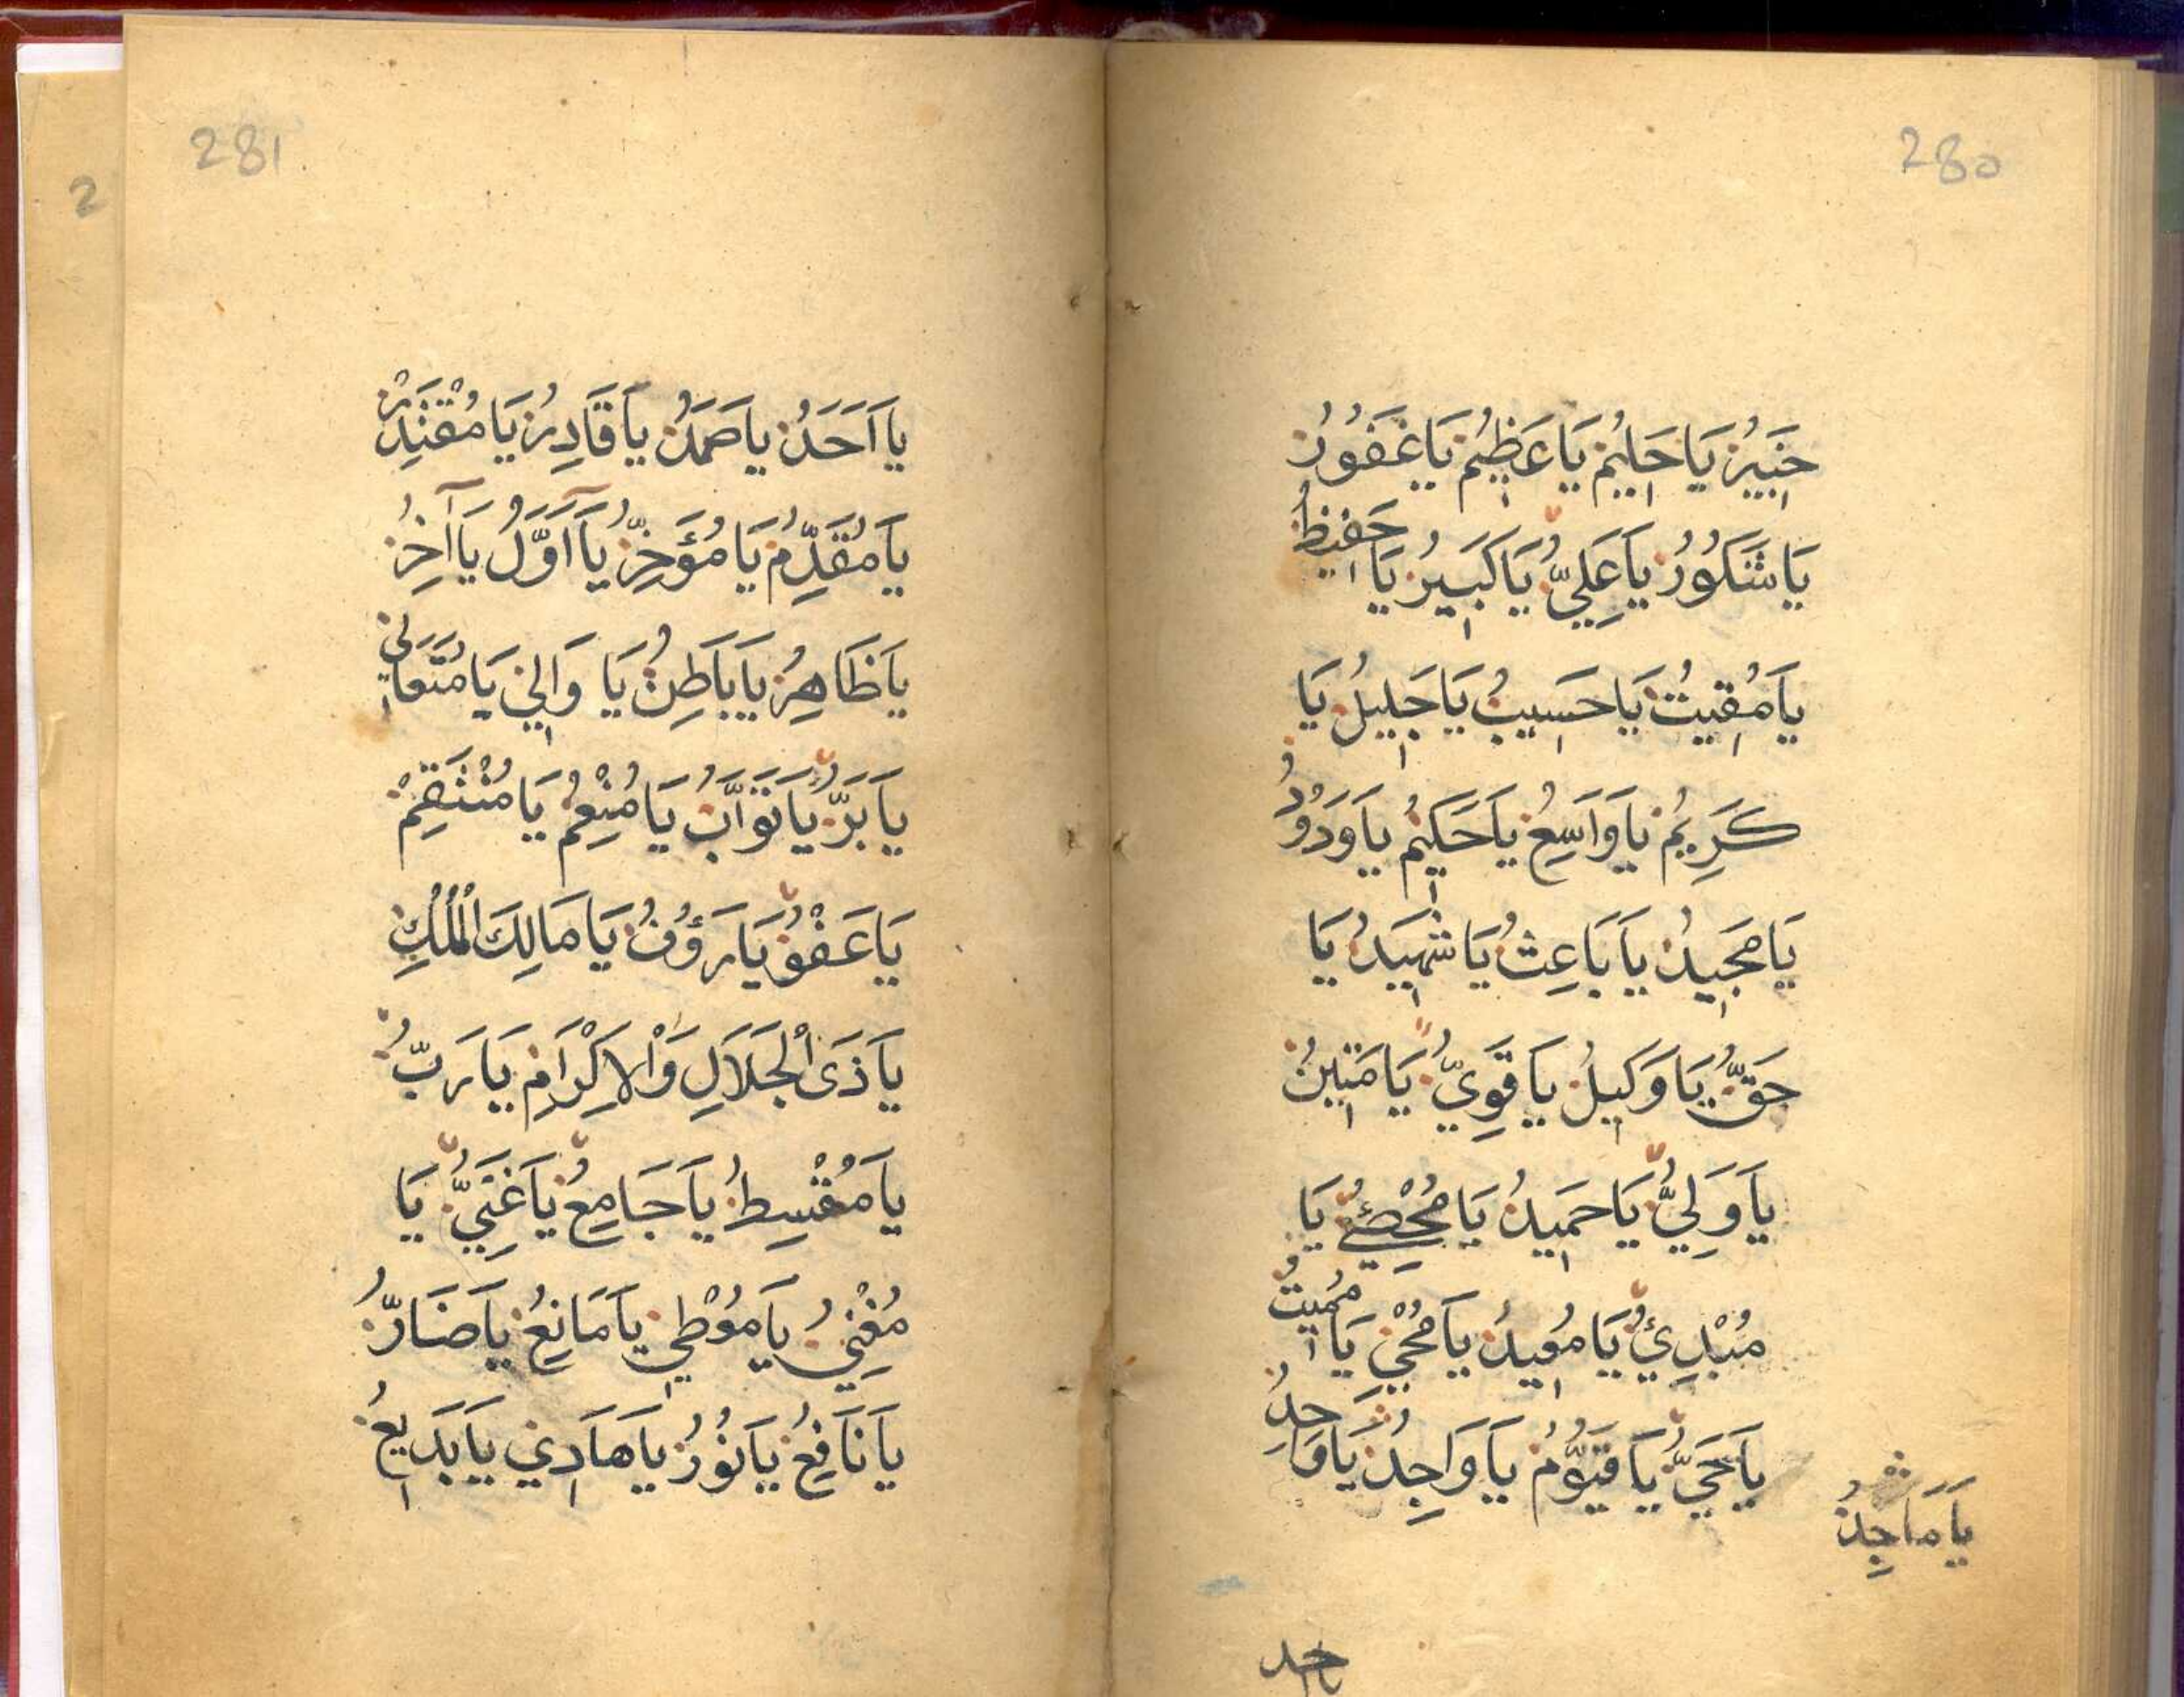 280
خَبِيْرُ يَا حَلِيْمُ يَا عَظِيْمُ يَا غَفُوْرُ
يَا شَكُوْرُ يَا عَلِيُّ يَا كَبِيْرُ يَا حَفِيْظُ
يَا مُقِيْتُ يَا حَسِيْبُ يَا جَلِيْلُ يَا
كَرِيْمُ يَا وَاسِعُ يَا حَكِيْمُ يَا وَدُوْدُ
يَا مَجِيْدُ يَا بَاعِثُ يَا شَهِيْدُ يَا
حَقُّ يَا وَكِيْلُ يَا قَوِيُّ يَا مَتِيْنُ
يَا وَلِيُّ يَا حَمِيْدُ يَا مُحْصِيُ يَا
مُبْدِئُ يَا مُعِيْدُ يَا مُحْيِيْ يَا مُمِيْتُ
يَا حَيُّ يَا قَيُّوْمُ يَا وَاجِدُ يَا وَاحِدُ
يَا مَاجِدُ
يا احد
281
يَا اَحَدُ يَا صَمَدُ يَا قَادِرُ يَا مُقْتَدِرْ
يَا مُقَدِّمُ يَا مُؤَخِّرُ يَا اَوَّلُ يَا آخِرُ
يَا ظَاهِرُ يَا بَاطِنُ يَا وَالِيْ يَا مُتَعَالِيْ
يَا بَرُّ يَا تَوَّابُ يَا مُنْعِمُ يَا مُنْتَقِمْ
يَا عَفْوُ يَا رَؤُفُ يَا مَالِكَ الْمُلْكِ
يَا ذَى الْجَلَالِ وَالْاِكْرَامِ يَا رَبُّ
يَا مُقْسِطُ يَا جَامِعُ يَا غَنِيُّ يَا
مُغْنِيُ يَا مُوْطِيْ يَا مَانِعُ يَا ضَارُّ
يَا نَافِعُ يَا نُوْرُ يَا هَادِيْ يَا بَدِيْعُ
2